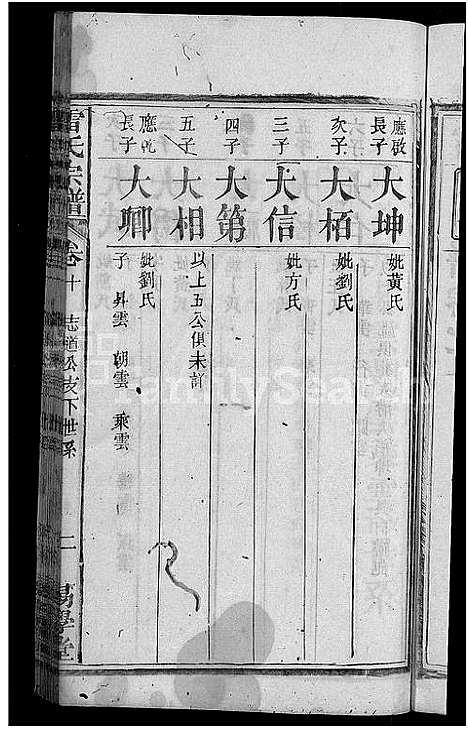 應啟長子
大坤
妣黃氏
次子
大栢
妣劉氏
三子
大信
妣方氏
四子
大第
五子
大相
以上五公俱未詳
應乾長子
大卿
妣劉氏
子 昇雲 朝雲 乘雲
雷氏宗譜
卷十 志道公支下世系
二
FamilySearch